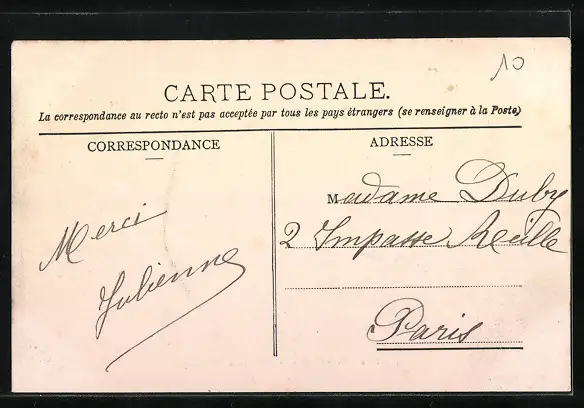 10
CARTE POSTALE.
La correspondance au recto n'est pas acceptée par tous les pays étrangers (se renseigner à la Poste)
CORRESPONDANCE
ADRESSE
Merci
Julienne
Madame Duby
2 Impasse Reille
Paris